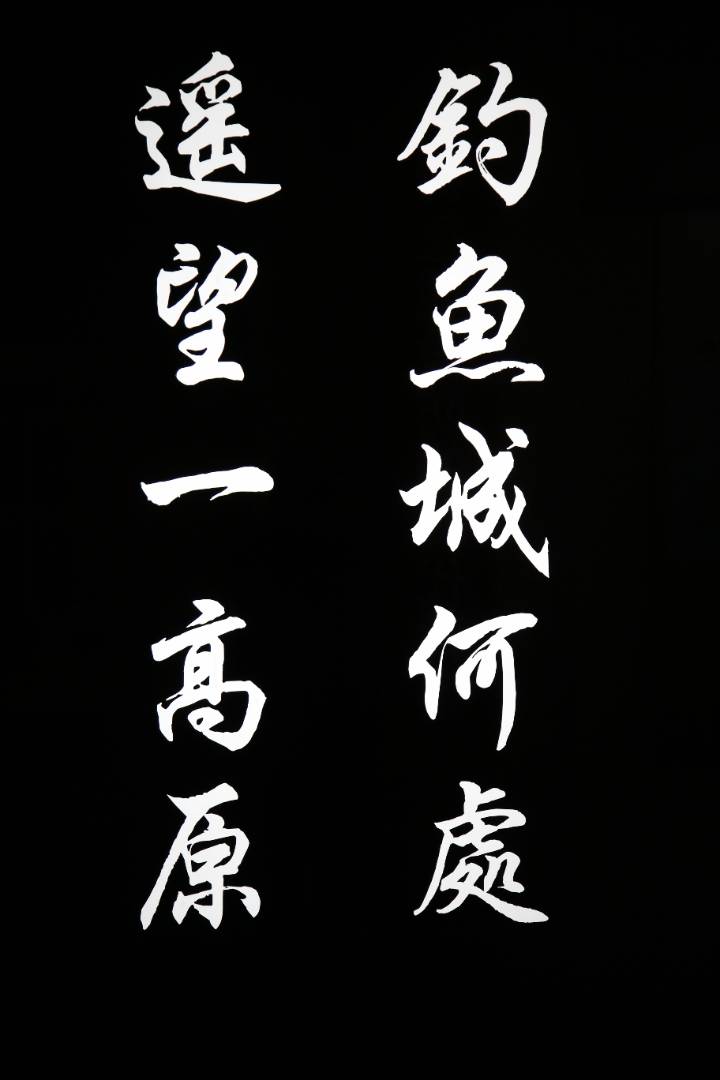 釣魚城何處
遥望一髙原